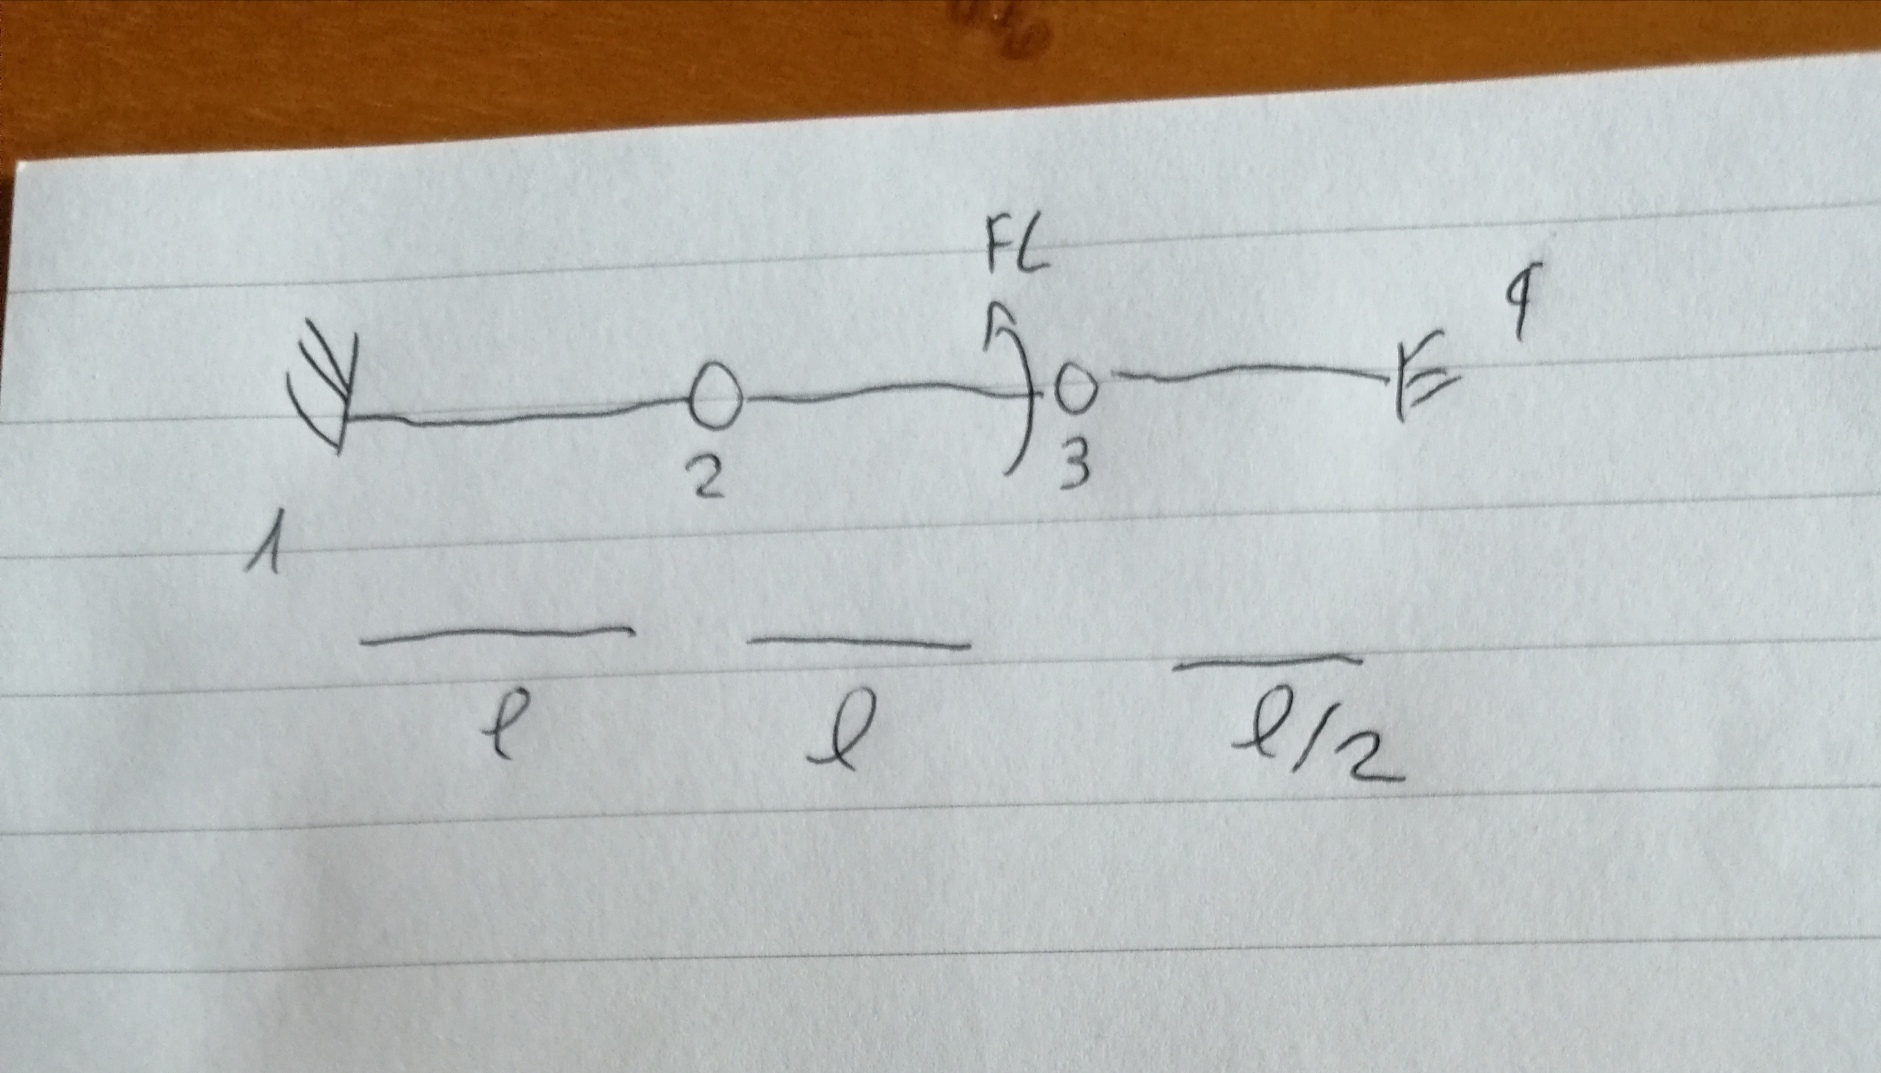 FL
4
2
3
1
l l l/2